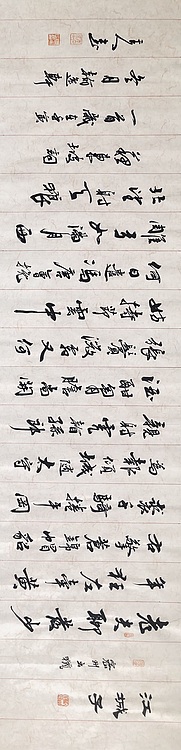 江城子
密州出獵
老夫聊發少
年狂左牽黃
右擎蒼錦帽貂
裘千騎捲平岡
為報傾城隨太守
親射虎看孫郎
酒酣胸膽尚開
張鬢微霜又何
妨持節雲中
何日遣馮唐會挽
雕弓如滿月西
北望射天狼
蘇東坡詞
一首歲壬寅
冬月
主人書